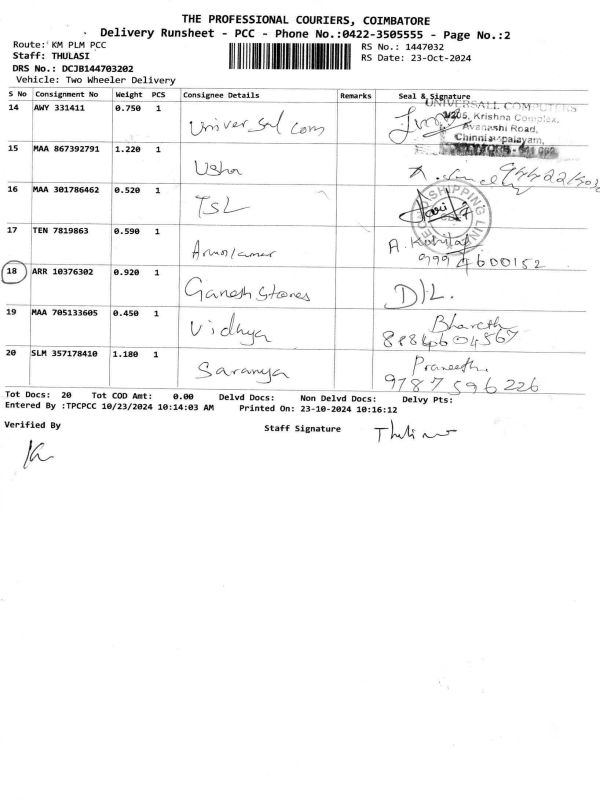 THE PROFESSIONAL COURIERS, COIMBATORE
Delivery Runsheet - PCC - Phone No.:0422-3505555 - Page No.:2
Route: KM PLM PCC
RS No.: 1447032
Staff: THULASI
RS Date: 23-Oct-2024
DRS No.: DCJB144703202
Vehicle: Two Wheeler Delivery
S No Consignment No Weight PCS Consignee Details Remarks Seal & Signature
14 AWY 331411 0.750 1 Universal com
UNIVERSALL COMPUTERS
Krishna Complex,
Avanashi Road,
Chinniampalayam,
15 MAA 867392791 1.220 1 Usha
16 MAA 301786462 0.520 1 TSL
SHIPPING LINE
17 TEN 7819863 0.590 1 Arunkumar A.
9994600152
18 ARR 10376302 0.920 1 Ganesh Stores D/L.
19 MAA 705133605 0.450 1 Vidhya Bharath
8984604567
20 SLM 357178410 1.180 1 Saranya Praneeth.
9787596226
Tot Docs: 20 Tot COD Amt: 0.00 Delvd Docs: Non Delvd Docs: Delvy Pts:
Entered By :TPCPCC 10/23/2024 10:14:03 AM Printed On: 23-10-2024 10:16:12
Verified By Staff Signature